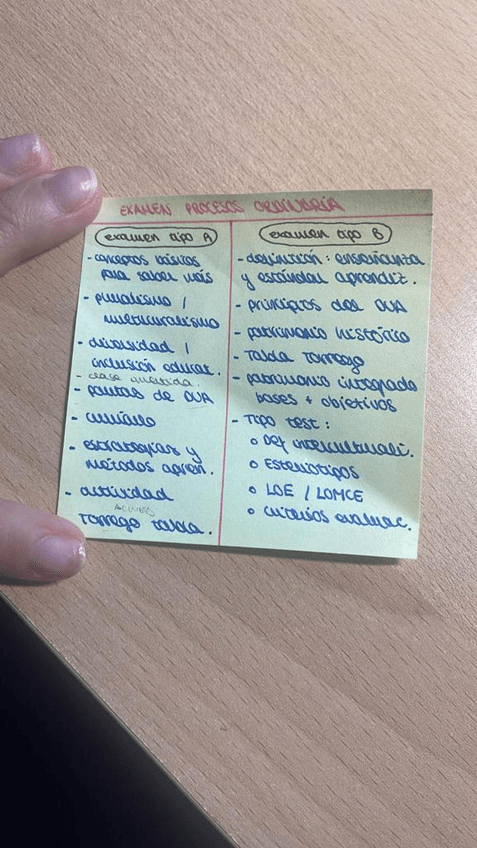 EXAMEN PROCESOS ORDINARIA
examen tipo A
- conceptos básicos
para saber más
- pluralismo /
multiculturalismo
- diversidad /
inclusión educat.
- clase invertida.
- pautas de DUA
- currículo
- estrategias y
métodos apren.
- actividad
Torrego tabla.
examen tipo B
- definición: enseñanza
y estándar aprendiz.
- principios del DUA
- patrimonio histórico
- Tabla Torrego
- patrimonio integrado
bases + objetivos
- Tipo test:
o Def intercultural.
o Estereotipos
o LOE / LOMCE
o criterios evaluac.